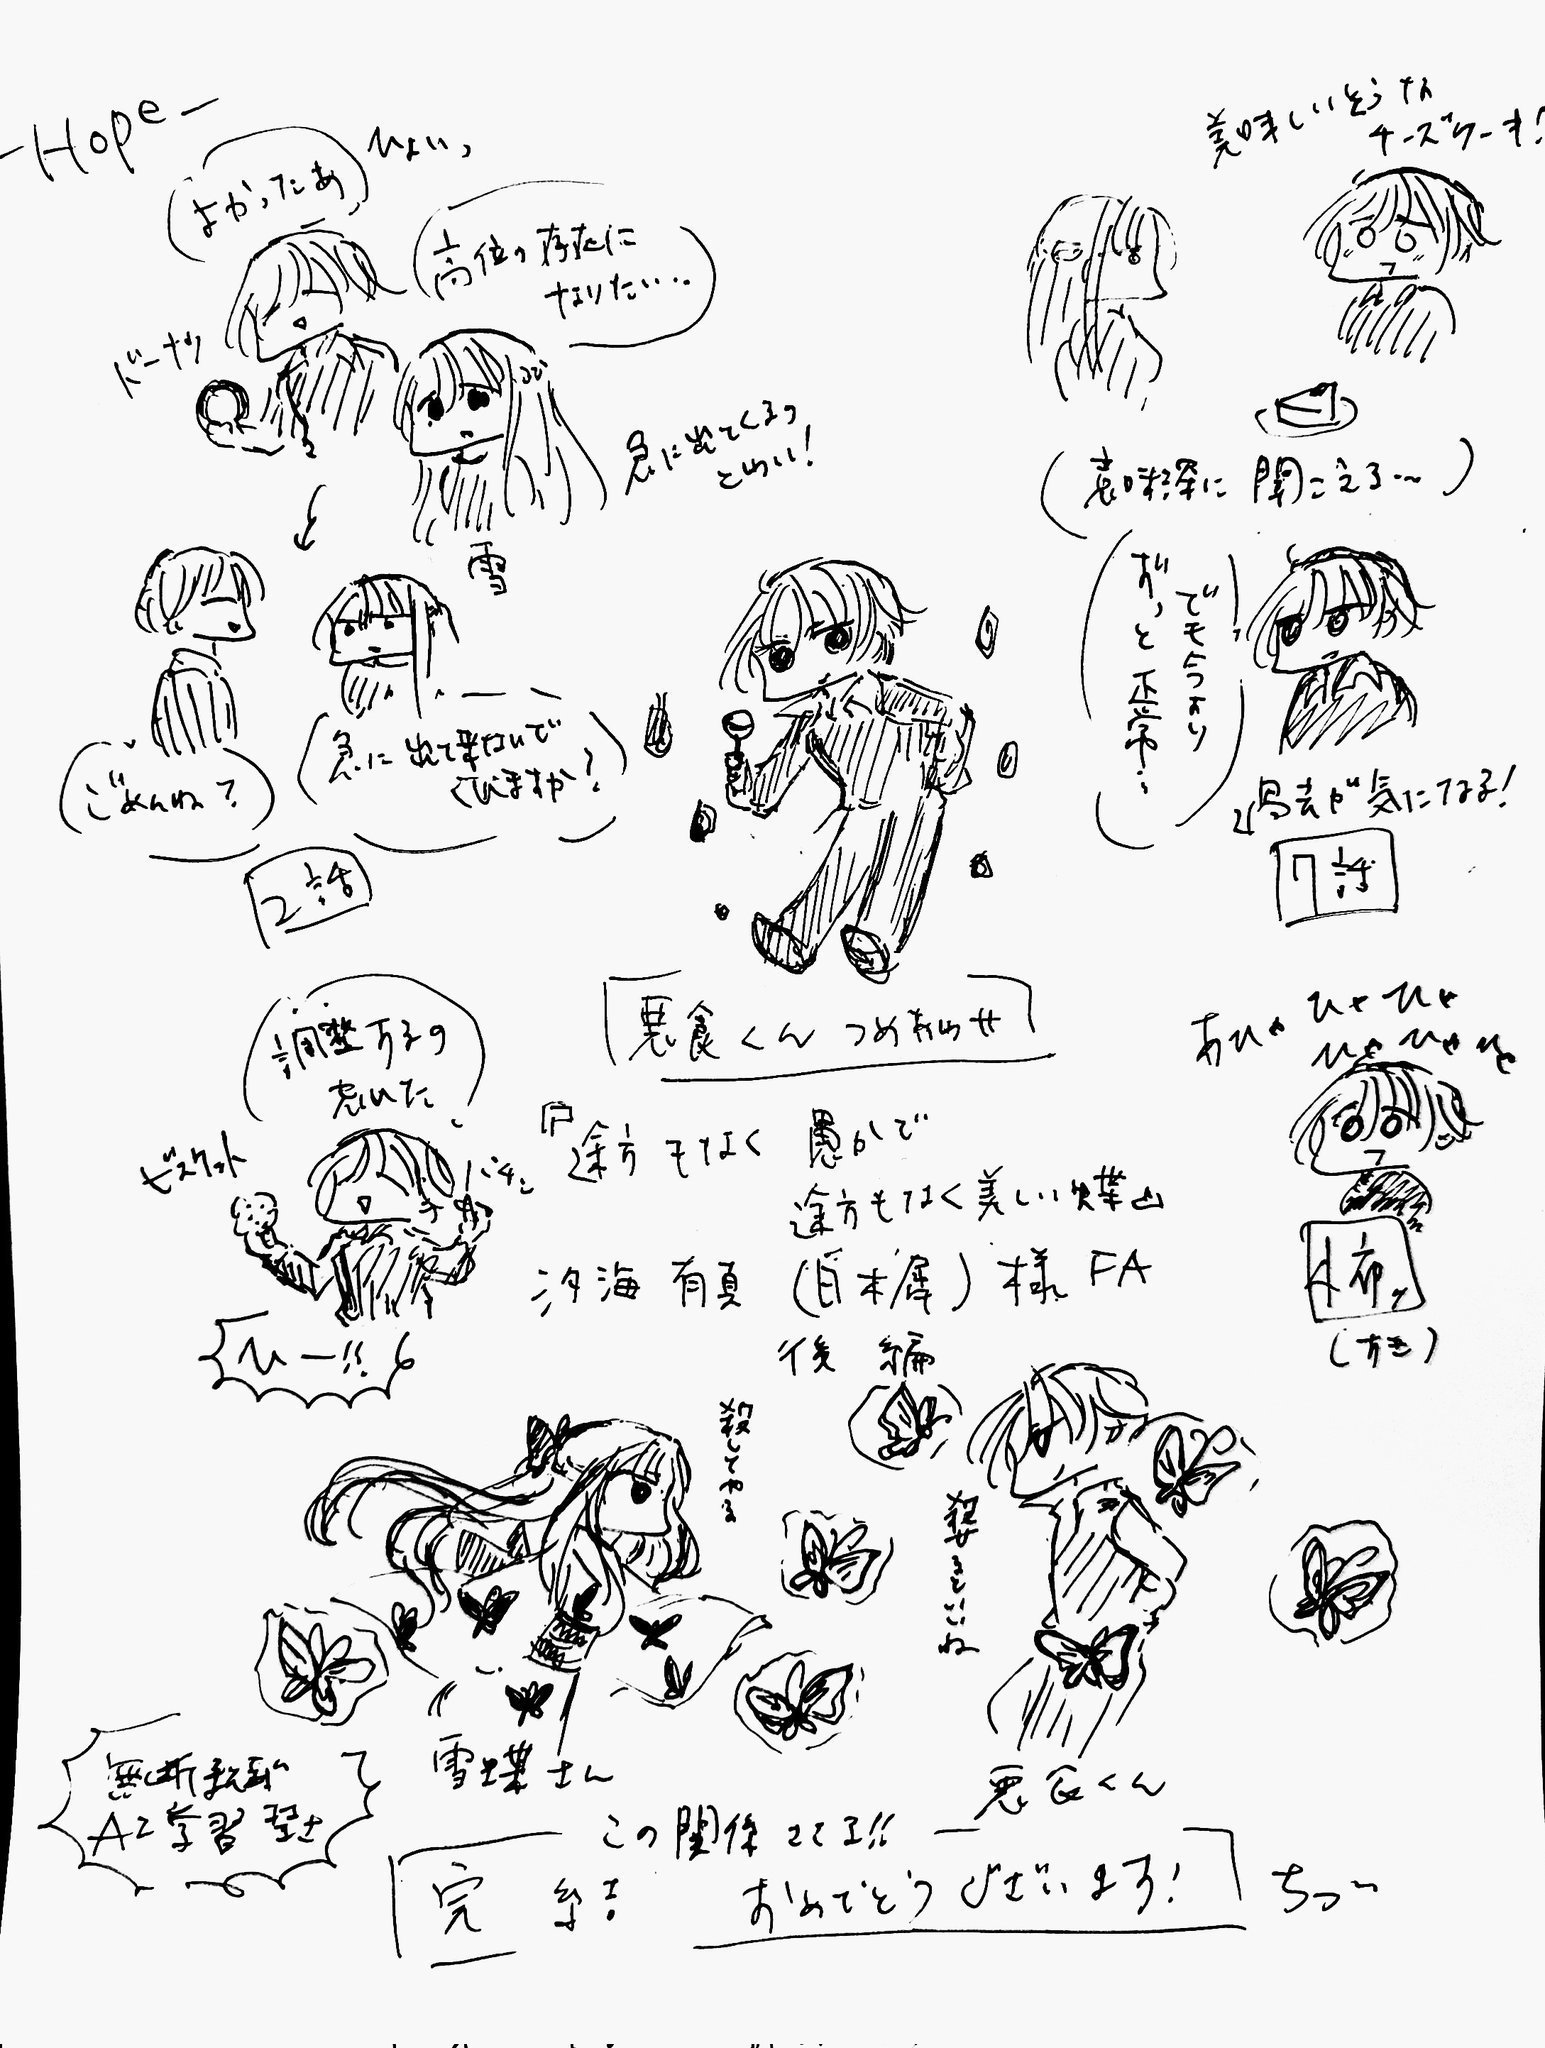 -Hope-
よかったあ
ひょいっ
高位の存在に
なりたい…
ドーナツ
急に出てくるの
こわい!
雪
ごめんね?
急に出て来ないで
くれますか?
2話
美味しいそうな
チーズケーキ!
意味深に聞こえる〜
でも今より
ずっと正常…
過去が気になる!
7話
悪食くんつめ合わせ
調整するの
忘れてた
ビスケット
パチン
ひー!!
あひゃひゃひゃ
ひゃひゃひゃ
(すき)
『途方もなく愚かで
途方もなく美しい蝶』
汐海有真(白木犀)様 FA
後編
殺してやる
殺せるといいね
雪蝶さん
悪食くん
無断転載
AI学習禁止
この関係エモい!!
完結 おめでとうございます!